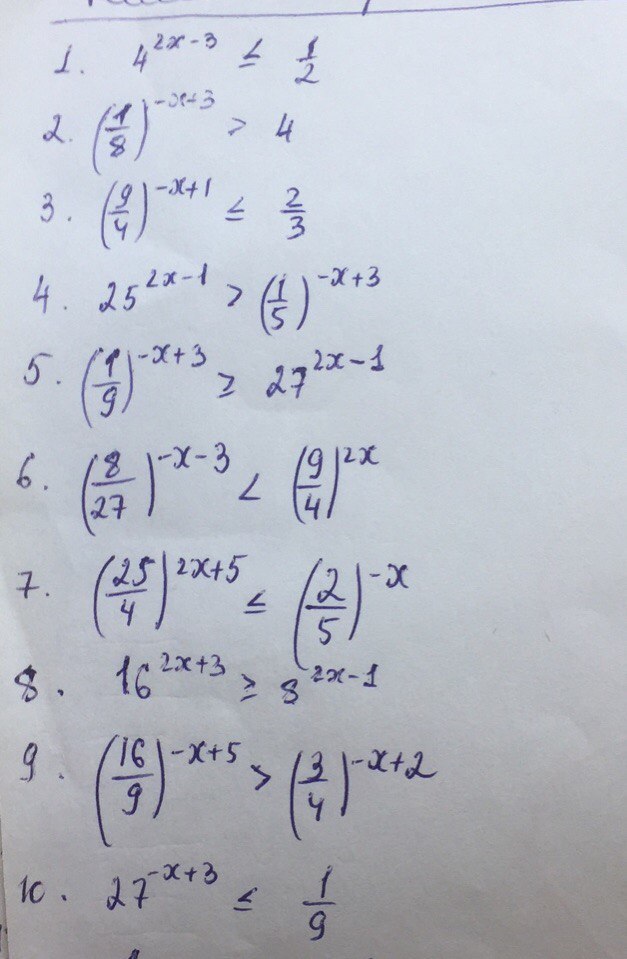 1. 4^{2x-3} ≤ 1/2
2. (1/8)^{-x+3} > 4
3. (9/4)^{-x+1} ≤ 2/3
4. 25^{2x-1} > (1/5)^{-x+3}
5. (1/9)^{-x+3} ≥ 27^{2x-1}
6. (8/27)^{-x-3} < (9/4)^{2x}
7. (25/4)^{2x+5} ≤ (2/5)^{-x}
8. 16^{2x+3} ≥ 8^{2x-1}
9. (16/9)^{-x+5} > (3/4)^{-x+2}
10. 27^{-x+3} ≤ 1/9